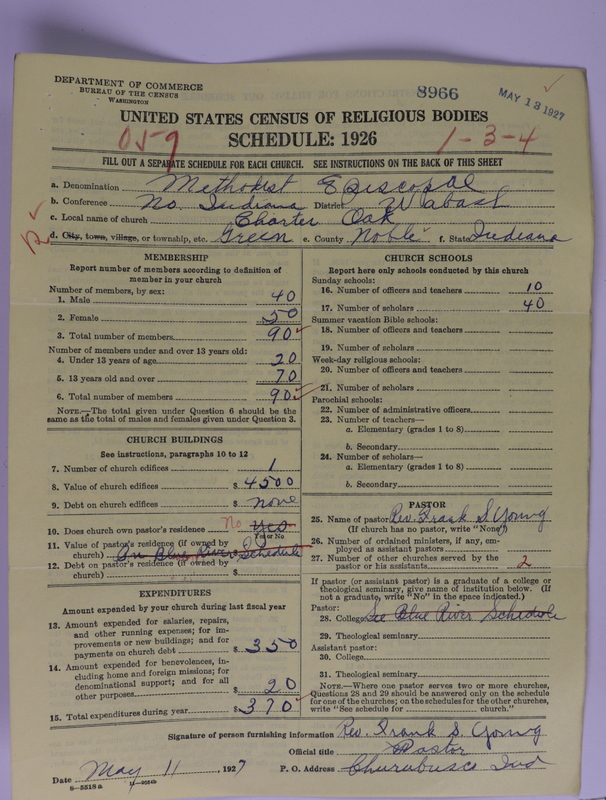 DEPARTMENT OF COMMERCE
BUREAU OF THE CENSUS
WASHINGTON
8966
MAY 13 1927
UNITED STATES CENSUS OF RELIGIOUS BODIES
SCHEDULE: 1926
057
1-3-4
FILL OUT A SEPARATE SCHEDULE FOR EACH CHURCH. SEE INSTRUCTIONS ON THE BACK OF THIS SHEET
a. Denomination Methodist Episcopal
b. Conference No. Indiana District Wabash
c. Local name of church Charter Oak
d. City, town, village, or township, etc. Green e. County Noble f. State Indiana
MEMBERSHIP
Report number of members according to definition of
member in your church
Number of members, by sex:
1. Male 40
2. Female 50
3. Total number of members 90
Number of members under and over 13 years old:
4. Under 13 years of age 20
5. 13 years old and over 70
6. Total number of members 90
NOTE.—The total given under Question 6 should be the
same as the total of males and females given under Question 3.
CHURCH BUILDINGS
See instructions, paragraphs 10 to 12
7. Number of church edifices 1
8. Value of church edifices $ 4500
9. Debt on church edifices $ none
10. Does church own pastor's residence No yes
Yes or No
11. Value of pastor's residence (if owned by
church) In Blue River Schedule
12. Debt on pastor's residence (if owned by
church) $
EXPENDITURES
Amount expended by your church during last fiscal year
13. Amount expended for salaries, repairs,
and other running expenses; for im-
provements or new buildings; and for
payments on church debt $ 350
14. Amount expended for benevolences, in-
cluding home and foreign missions; for
denominational support; and for all
other purposes $ 20
15. Total expenditures during year $ 370
CHURCH SCHOOLS
Report here only schools conducted by this church
Sunday schools:
16. Number of officers and teachers 10
17. Number of scholars 40
Summer vacation Bible schools:
18. Number of officers and teachers
19. Number of scholars
Week-day religious schools:
20. Number of officers and teachers
21. Number of scholars
Parochial schools:
22. Number of administrative officers
23. Number of teachers—
a. Elementary (grades 1 to 8)
b. Secondary
24. Number of scholars—
a. Elementary (grades 1 to 8)
b. Secondary
PASTOR
25. Name of pastor Rev. Frank S. Young
(If church has no pastor, write "None")
26. Number of ordained ministers, if any, em-
ployed as assistant pastors
27. Number of other churches served by the
pastor or his assistants 2
If pastor (or assistant pastor) is a graduate of a college or
theological seminary, give name of institution below. (If
not a graduate, write "No" in the space indicated.)
Pastor:
28. College See Blue River Schedule
29. Theological seminary
Assistant pastor:
30. College
31. Theological seminary
NOTE.—Where one pastor serves two or more churches,
Questions 28 and 29 should be answered only on the schedule
for one of the churches; on the schedules for the other churches,
write "See schedule for church."
Signature of person furnishing information Rev. Frank S. Young
Official title Pastor
Date May 11, 1927 P. O. Address Churubusco Ind
8—5518 a 11—9554b